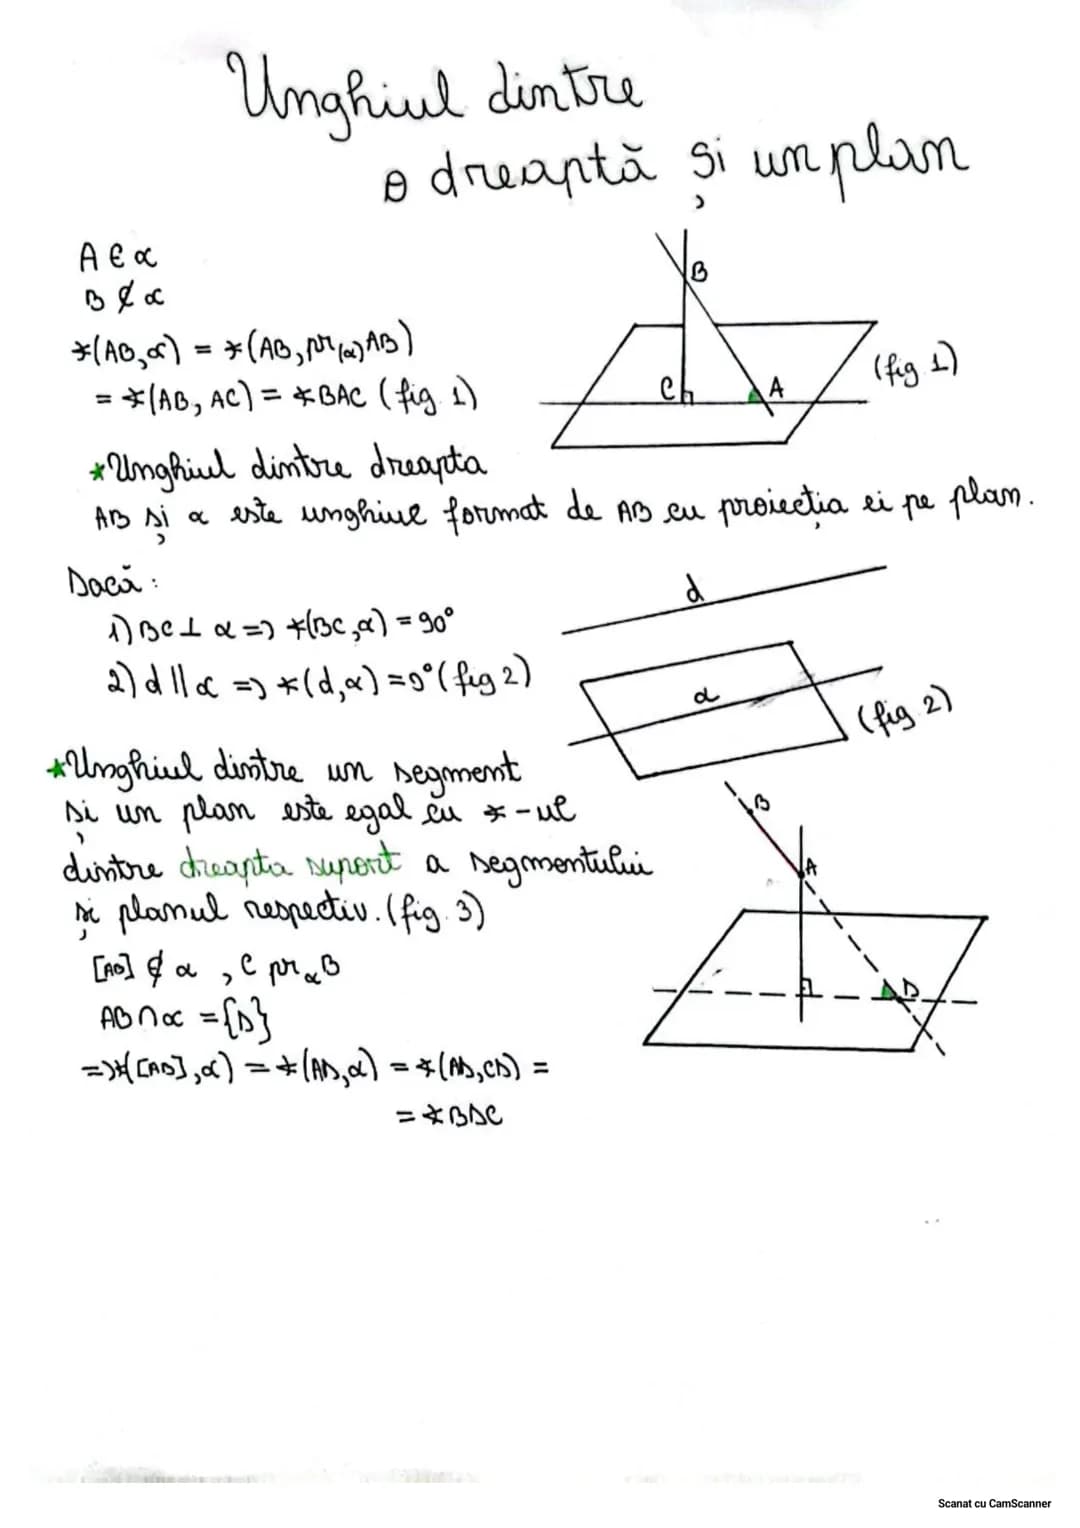 Unghiul dintre
o dreaptă și un plan
A ∈ α
B ∉ α
∢(AB,α) = ∢(AB, pr(α)AB)
= ∢(AB, AC) = ∢BAC (fig. 1)
B
C
A
(fig 1)
*Unghiul dintre dreapta
AB și α este unghiul format de AB cu proiecția ei pe plan.
Dacă:
1) BC ⊥ α => ∢(BC,α) = 90°
2) d || α => ∢(d,α) = 0° (fig 2)
d
α
(fig. 2)
*Unghiul dintre un segment
și un plan este egal cu ∢-ul
dintre dreapta suport a segmentului
și planul respectiv. (fig. 3)
[AB] ∉ α , C pr α B
AB ∩ α = {D}
=> ∢([AB],α) = ∢(AD,α) = ∢(AD,CD) =
= ∢BDC
B
A
D
Scanat cu CamScanner